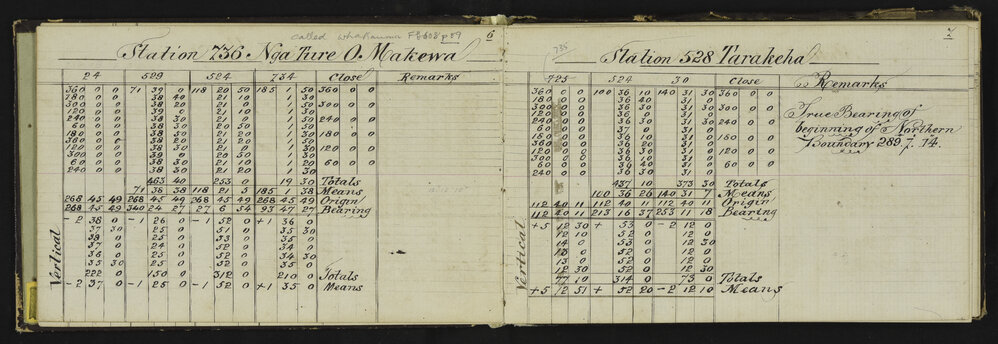 called Whakauma FB608 p59
6
Station 736 Nga Ture O Makewa
24 529 524 734 Close Remarks
360 0 0 71 39 0 118 20 50 185 1 50 360 0 0
38 40 21 10 1 50
300 0 0 38 20 21 0 1 30 300 0 0
120 0 0 39 0 21 10 1 30
240 0 0 38 30 21 0 1 30 240 0 0
60 0 0 38 30 20 50 1 30
180 0 0 38 50 21 20 1 30 180 0 0
360 0 0 38 20 21 10 1 30
120 0 0 38 30 21 0 1 30 120 0 0
300 0 0 39 0 20 50 1 30
60 0 0 38 30 21 10 1 30 60 0 0
240 0 0 38 30 21 20 1 30
463 40 253 0 19 30 Totals
71 38 38 118 21 5 185 1 38 Means
268 45 49 268 45 49 268 45 49 268 45 49 Origin
268 45 49 340 24 27 27 6 54 93 47 27 Bearing
Vertical
- 2 38 0 - 1 26 0 - 1 52 0 + 1 36 0
37 30 25 0 51 0 35 0
38 0 25 0 53 0 35 0
37 0 24 0 52 0 34 0
36 0 25 0 52 0 34 30
35 30 25 0 52 0 35 30
222 0 150 0 312 0 210 0 Totals
- 2 37 0 - 1 25 0 - 1 52 0 + 1 35 0 Means
7
Station 528 Tarakeha
735
725 524 30 Close Remarks
360 0 0 100 36 10 140 31 30 360 0 0
180 0 0 36 40 31 0
300 0 0 36 30 31 30 300 0 0
120 0 0 36 0 31 0
240 0 0 36 30 31 0 240 0 0
60 0 0 37 0 31 0
180 0 0 36 10 31 30 180 0 0
360 0 0 36 30 31 0
120 0 0 36 10 31 0 120 0 0
300 0 0 36 10 31 0
60 0 0 36 40 31 0 60 0 0
240 0 0 36 0 31 30
True Bearing of
beginning of Northern
Boundary 289.7.14.
437 10 373 30 Totals
100 36 26 140 31 7 Means
112 40 11 112 40 11 112 40 11 Origin
112 40 11 213 16 37 253 11 18 Bearing
Vertical
+ 5 12 30 + 53 0 - 2 12 0
12 10 52 0 12 0
14 0 53 0 12 30
13 0 52 0 12 0
13 0 52 0 12 0
12 30 52 0 12 30
77 10 314 0 73 0 Totals
+ 5 12 51 + 52 20 - 2 12 10 Means